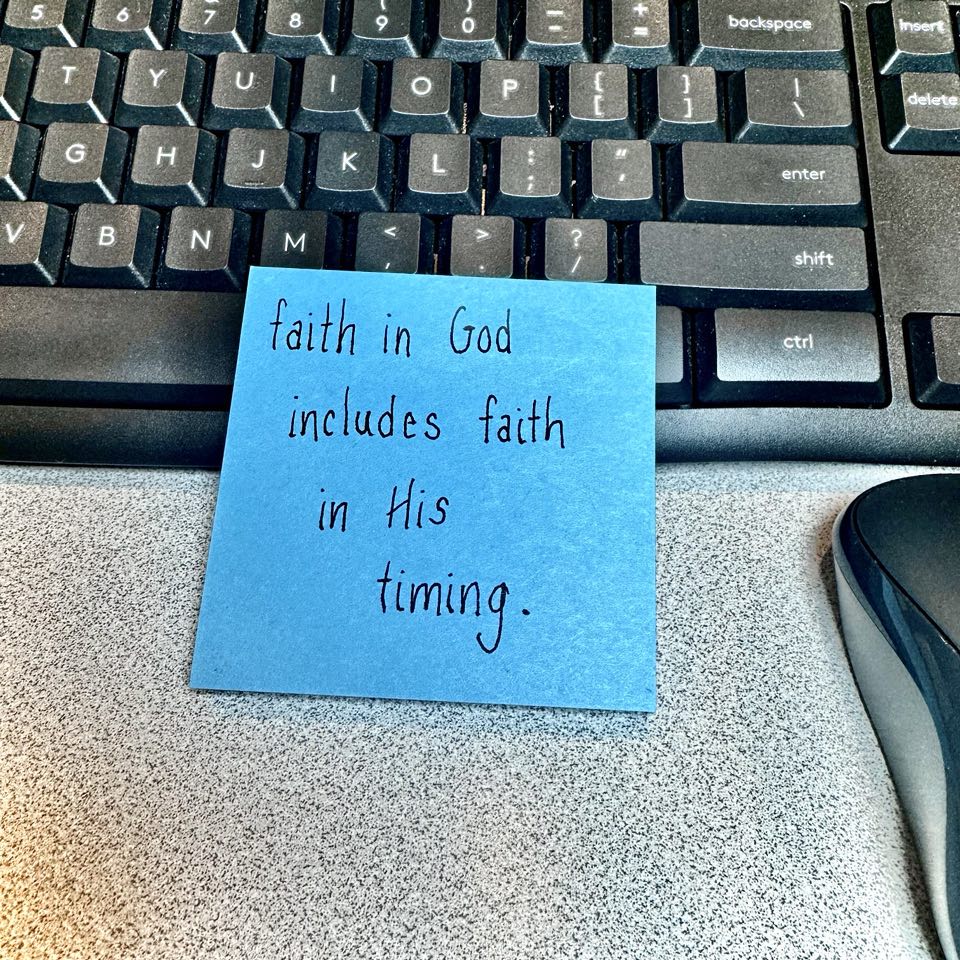 5 6 7 8 ( 9 ) 0 — - + = backspace insert
T Y U I O P { [ } ] | \ delete
G H J K L : ; " ' enter
V B N M < , > . ? / shift
ctrl
faith in God
includes faith
in His
timing.